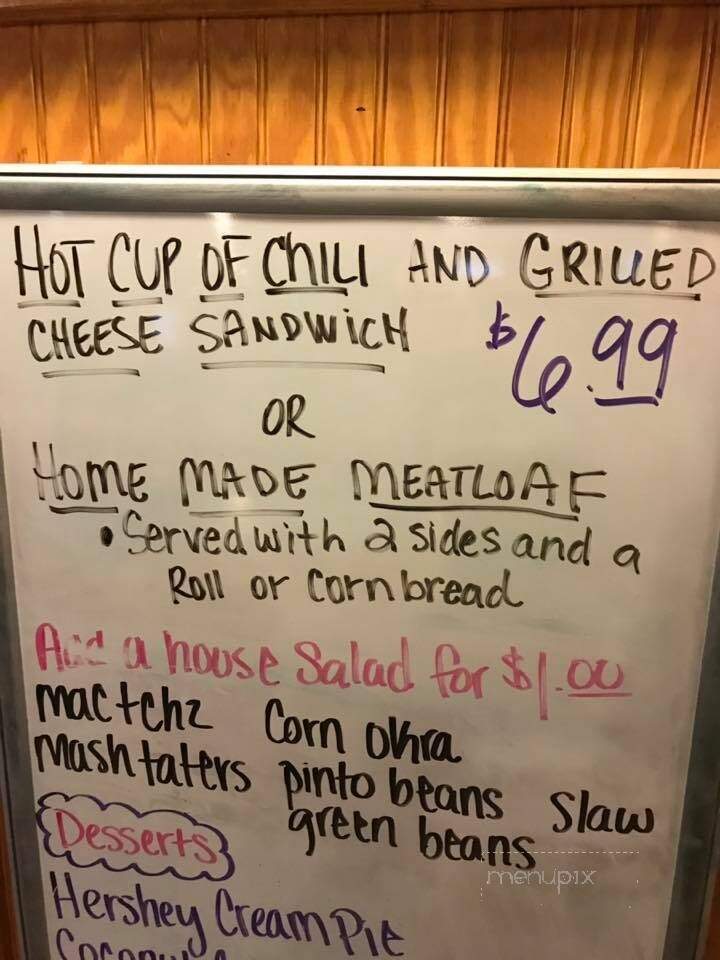 HOT CUP OF CHILI AND GRILLED
CHEESE SANDWICH $6.99
OR
HOME MADE MEATLOAF
• Served with 2 sides and a
Roll or Cornbread
Add a house Salad for $1.00
mac+chz Corn okra
mashtaters pinto beans slaw
green beans
Desserts
Hershey Cream Pie
menupix